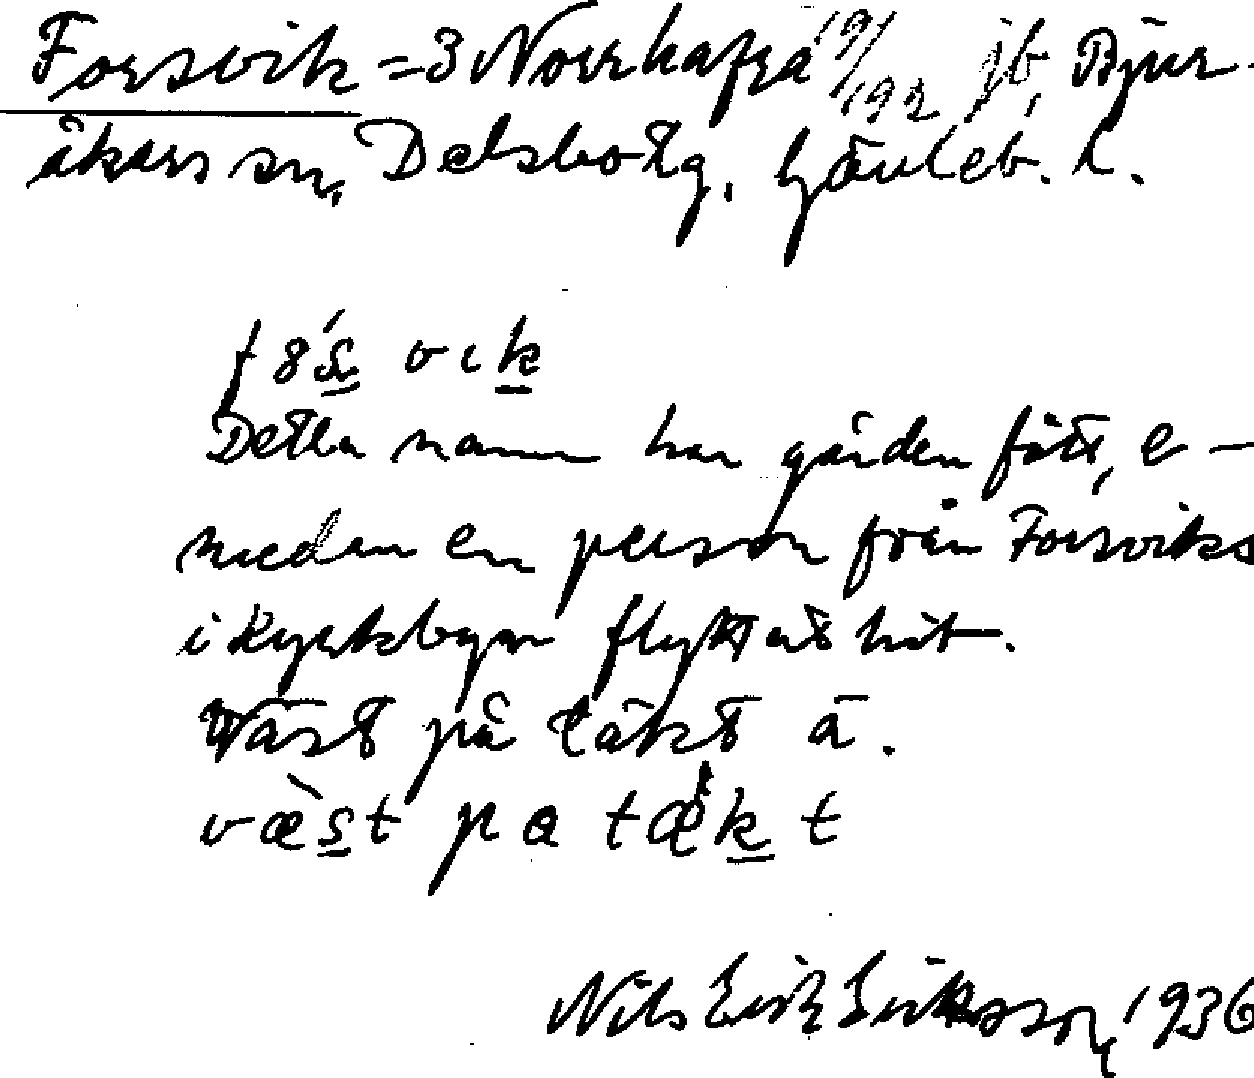 Forsvik = 3 Norrhafra 19/192 jb, Bjur-
åkers sn, Delsbo tg, Gävleb. l.
Detta namn har gården fått, e-
medan en person från Forsviks
i Kyrkbyn flyttat hit.
Väst på täkt ä.
væst pa tækt
Nils Erik Eriksson, 1936